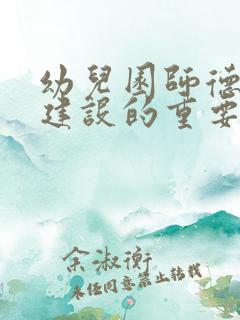 幼兒園師德
建設的重要
余淑衡
未經同意禁止轉載